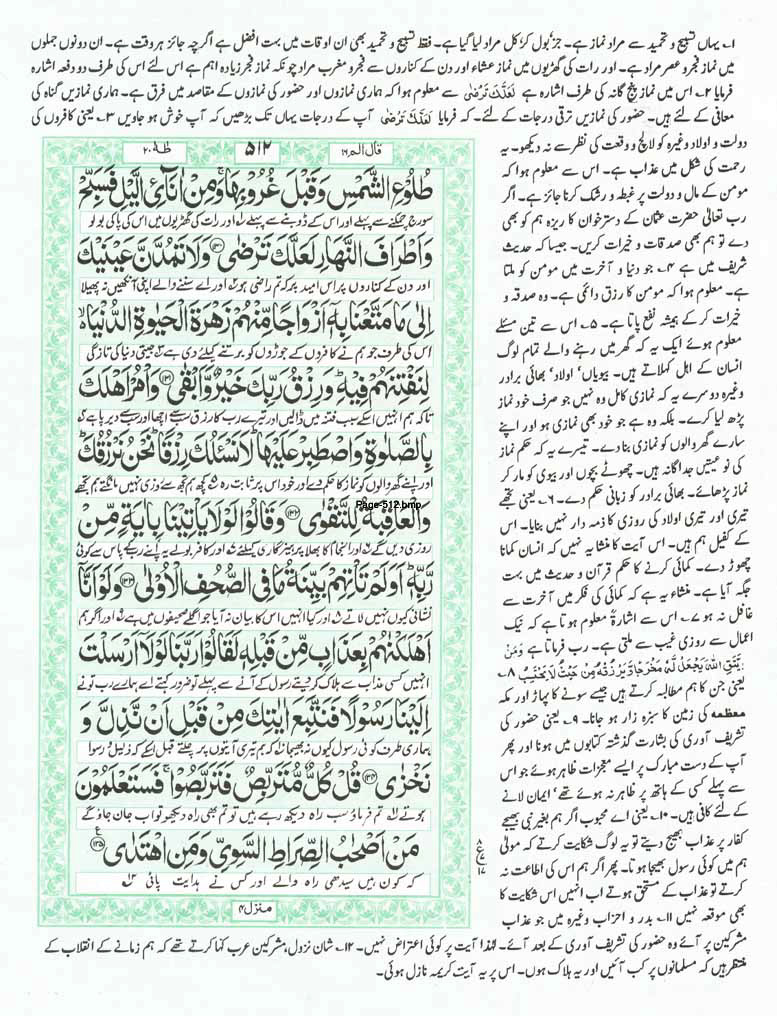 ۱؎ یہاں تسبیح و تحمید سے مراد نماز ہے۔ جز بول کر کل مراد لیا گیا ہے۔ فقط تسبیح و تحمید بھی ان اوقات میں بہت افضل ہے اگرچہ جائز ہر وقت ہے۔ ان دونوں جملوں
میں نماز فجر و عصر مراد ہے۔ اور رات کی گھڑیوں میں نماز عشاء اور دن کے کناروں سے فجر و مغرب مراد چونکہ نماز فجر زیادہ اہم ہے اس لئے اس کی طرف دو دفعہ اشارہ
فرمایا ۲؎ اس میں نماز پنج گانہ کی طرف اشارہ ہے لَعَلَّكَ تَرْضٰى سے معلوم ہوا کہ ہماری نمازوں اور حضور کی نمازوں کے مقاصد میں فرق ہے۔ ہماری نمازیں گناہ کی
معافی کے لئے ہیں۔ حضور کی نمازیں ترقی درجات کے لئے۔ کہ فرمایا لَعَلَّكَ تَرْضٰى آپ کے درجات یہاں تک بڑھیں کہ آپ خوش ہو جاویں ۳؎ یعنی کافروں کی
دولت و اولاد وغیرہ کو لالچ و وقعت کی نظر سے نہ دیکھو۔ یہ
رحمت کی شکل میں عذاب ہے۔ اس سے معلوم ہوا کہ
مومن کے مال و دولت پر غبطہ و رشک کرنا جائز ہے۔ اگر
رب تعالٰی حضرت عثمان کے دسترخوان کا ریزہ ہم کو بھی
دے تو ہم بھی صدقات و خیرات کریں۔ جیسا کہ حدیث
شریف میں ہے ۴؎ جو دنیا و آخرت میں مومن کو ملتا
ہے۔ معلوم ہوا کہ مومن کا رزق دائمی ہے۔ وہ صدقہ و
خیرات کر کے ہمیشہ نفع پاتا ہے۔ ۵؎ اس سے تین مسئلے
معلوم ہوئے ایک یہ کہ گھر میں رہنے والے تمام لوگ
انسان کے اہل کہلاتے ہیں۔ بیویاں' اولاد' بھائی برادر
وغیرہ دوسرے یہ کہ نمازی کامل وہ نہیں جو صرف خود نماز
پڑھ لیا کرے۔ بلکہ وہ ہے جو خود بھی نمازی ہو اور اپنے
سارے گھر والوں کو نمازی بنا دے۔ تیسرے یہ کہ حکم نماز
کی نوعیتیں جداگانہ ہیں۔ چھوٹے بچوں اور بیوی کو مار کر
نماز پڑھائے۔ بھائی برادر کو زبانی حکم دے۔ ۶؎ یعنی تجھے
تیری اور تیری اولاد کی روزی کا ذمہ دار نہیں بنایا۔ اس
کے کفیل ہم ہیں۔ اس آیت کا منشا یہ نہیں کہ انسان کمانا
چھوڑ دے۔ کمائی کرنے کا حکم قرآن و حدیث میں بہت
جگہ آیا ہے۔ منشاء یہ ہے کہ کمائی کی فکر میں آخرت سے
غافل نہ ہو ۷؎ اس سے اشارۃً معلوم ہوتا ہے کہ نیک
اعمال سے روزی غیب سے ملتی ہے۔ رب فرماتا ہے وَمَنْ
يَّتَّقِ اللّٰهَ يَجْعَلْ لَّهٗ مَخْرَجًا وَّيَرْزُقْهُ مِنْ حَيْثُ لَا يَحْتَسِبُ ۸؎
یعنی جن کا ہم مطالبہ کرتے ہیں جیسے سونے کا پہاڑ اور مکہ
معظمہ کی زمین کا سبزہ زار ہو جانا۔ ۹؎ یعنی حضور کی
تشریف آوری کی بشارت گذشتہ کتابوں میں ہونا اور پھر
آپ کے دست مبارک پر ایسے معجزات ظاہر ہوئے جو اس
سے پہلے کسی کے ہاتھ پر ظاہر نہ ہوئے تھے' ایمان لانے
کے لئے کافی ہیں۔ ۱۰؎ یعنی اے محبوب اگر ہم بغیر نبی بھیجے
کفار پر عذاب بھیج دیتے تو یہ لوگ شکایت کرتے کہ مولٰی
ہم میں کوئی رسول بھیجا ہوتا۔ پھر اگر ہم اس کی اطاعت نہ
کرتے تو عذاب کے مستحق ہوتے اب انہیں اس شکایت کا
بھی موقعہ نہیں ۱۱؎ بدر و احزاب وغیرہ میں جو عذاب
مشرکین پر آئے وہ حضور کی تشریف آوری کے بعد آئے۔ لہٰذا آیت پر کوئی اعتراض نہیں۔ ۱۲؎ شان نزول، مشرکین عرب کہا کرتے تھے کہ ہم زمانے کے انقلاب کے
منتظر ہیں کہ مسلمانوں پر کب آئیں اور یہ ہلاک ہوں۔ اس پر یہ آیت کریمہ نازل ہوئی۔
قال الم ۱۶ ۵۱۲ طٰهٰ ۲۰
طُلُوْعِ الشَّمْسِ وَقَبْلَ غُرُوْبِهَا ۚ وَمِنْ اٰنَآئِ الَّيْلِ فَسَبِّحْ
سورج چمکنے سے پہلے اور اس کے ڈوبنے سے پہلے اور رات کی گھڑیوں میں اس کی پاکی بولو
وَاَطْرَافَ النَّهَارِ لَعَلَّكَ تَرْضٰى ﴿۱۳۰﴾ وَلَا تَمُدَّنَّ عَيْنَيْكَ
اور دن کے کناروں پر اس امید پر کہ تم راضی ہو اور اے سننے والے اپنی آنکھیں نہ پھیلا
اِلٰى مَا مَتَّعْنَا بِهٖٓ اَزْوَاجًا مِّنْهُمْ زَهْرَةَ الْحَيٰوةِ الدُّنْيَا ۙ
اس کی طرف جو ہم نے کافروں کے جوڑوں کو برتنے کیلئے دی ہے جیتی دنیا کی تازگی
لِنَفْتِنَهُمْ فِيْهِ ؕ وَرِزْقُ رَبِّكَ خَيْرٌ وَّاَبْقٰى ﴿۱۳۱﴾ وَاْمُرْ اَهْلَكَ
تاکہ ہم انہیں اسکے سبب فتنہ میں ڈالیں اور تیرے رب کا رزق سب سے اچھا اور سب سے دیر پا ہے
بِالصَّلٰوةِ وَاصْطَبِرْ عَلَيْهَا ؕ لَا نَسْئَلُكَ رِزْقًا ؕ نَحْنُ نَرْزُقُكَ ؕ
اور اپنے گھر والوں کو نماز کا حکم دے اور خود اس پر ثابت رہ کچھ ہم تجھ سے روزی نہیں مانگتے ہم تجھے
وَالْعَاقِبَةُ لِلتَّقْوٰى ﴿۱۳۲﴾ وَقَالُوْا لَوْلَا يَاْتِيْنَا بِاٰيَةٍ مِّنْ
Page-512.bmp
روزی دیں گے اور انجام کا بھلا پرہیزگاری کیلئے اور کافر بولے یہ اپنے رب کے پاس سے کوئی
رَّبِّهٖ ؕ اَوَلَمْ تَاْتِهِمْ بَيِّنَةُ مَا فِى الصُّحُفِ الْاُوْلٰى ﴿۱۳۳﴾ وَلَوْ اَنَّآ
نشانی کیوں نہیں لاتے اور کیا انہیں اس کا بیان نہ آیا جو اگلے صحیفوں میں ہے اور اگر ہم
اَهْلَكْنٰهُمْ بِعَذَابٍ مِّنْ قَبْلِهٖ لَقَالُوْا رَبَّنَا لَوْلَآ اَرْسَلْتَ
انہیں کسی عذاب سے ہلاک کر دیتے رسول کے آنے سے پہلے تو ضرور کہتے اے ہمارے رب تو نے
اِلَيْنَا رَسُوْلًا فَنَتَّبِعَ اٰيٰتِكَ مِنْ قَبْلِ اَنْ نَّذِلَّ وَ
ہماری طرف کوئی رسول کیوں نہ بھیجا کہ ہم تیری آیتوں پر چلتے قبل اسکے کہ ذلیل و رسوا
نَخْزٰى ﴿۱۳۴﴾ قُلْ كُلٌّ مُّتَرَبِّصٌ فَتَرَبَّصُوْا ۚ فَسَتَعْلَمُوْنَ
ہوتے تم فرماؤ سب راہ دیکھ رہے ہیں تو تم بھی راہ دیکھو تو اب جان جاؤ گے
مَنْ اَصْحٰبُ الصِّرَاطِ السَّوِىِّ وَمَنِ اهْتَدٰى ﴿۱۳۵﴾
کہ کون ہیں سیدھی راہ والے اور کس نے ہدایت پائی
منزل ۴